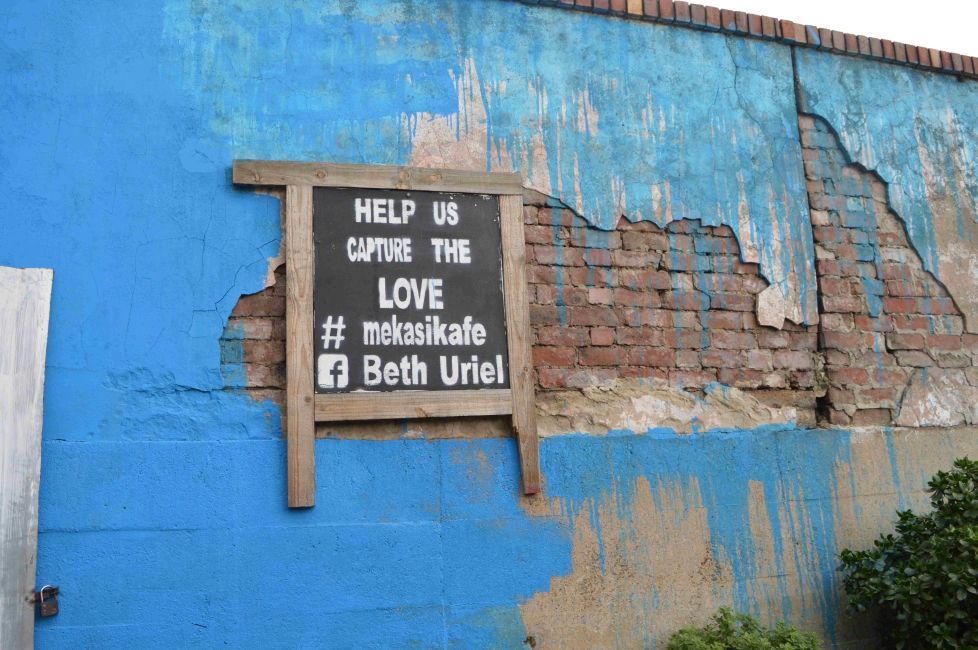 HELP US
CAPTURE THE
LOVE
# mekasikafe
f Beth Uriel